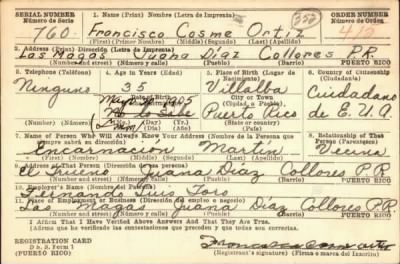 SERIAL NUMBER 1. Name (Print) Nombre (Letra de Imprenta) ORDER NUMBER
Número de Serie Número de Orden
760 Francisco Cosme Ortiz 350 412
(First) (Primer Nombre) (Middle) (Segundo) (Last) (Apellido)
2. Address (Print) Dirección (Letra de Imprenta)
Las Magas Juana Diaz Collores P.R.
(Number and street) (Número y calle) (Town) (Pueblo) PUERTO RICO
3. Telephone (Teléfono) 4. Age in Years (Edad) 5. Place of Birth (Lugar de Nacimiento) 6. Country of Citizenship (Ciudadanía)
Ninguno 35 Villalba Ciudadano
Date of Birth City or Town (Ciudad o Pueblo)
1905 Puerto Rico de E.U.A.
(State or country)
7. Name of Person Who Will Always Know Your Address (Nombre de la Persona que siempre sabrá su dirección) 8. Relationship of That Person (Parentesco)
Encarnación Martin Vecina
(First) (Primer Nombre) (Middle) (Segundo) (Last) (Apellido)
9. Address of That Person (Dirección de esa persona)
El Juana Diaz Collores P.R.
(Number and street) (Número y calle) (Town) (Pueblo) PUERTO RICO
10. Employer's Name (Nombre del Patrono)
Fernando Luis Toro
11. Place of Employment or Business (Dirección del empleo o negocio)
Las Magas Juana Díaz Collores P.R.
(Number and street) (Número y calle) (Town) (Pueblo) PUERTO RICO
I Affirm That I Have Verified Above Answers and That They Are True.
Afirmo que he verificado las contestaciones que preceden y que todas son correctas.
REGISTRATION CARD
D. S. S. Form 1
(PUERTO RICO) (Registrant's signature) (Firma o marca del Inscrito)